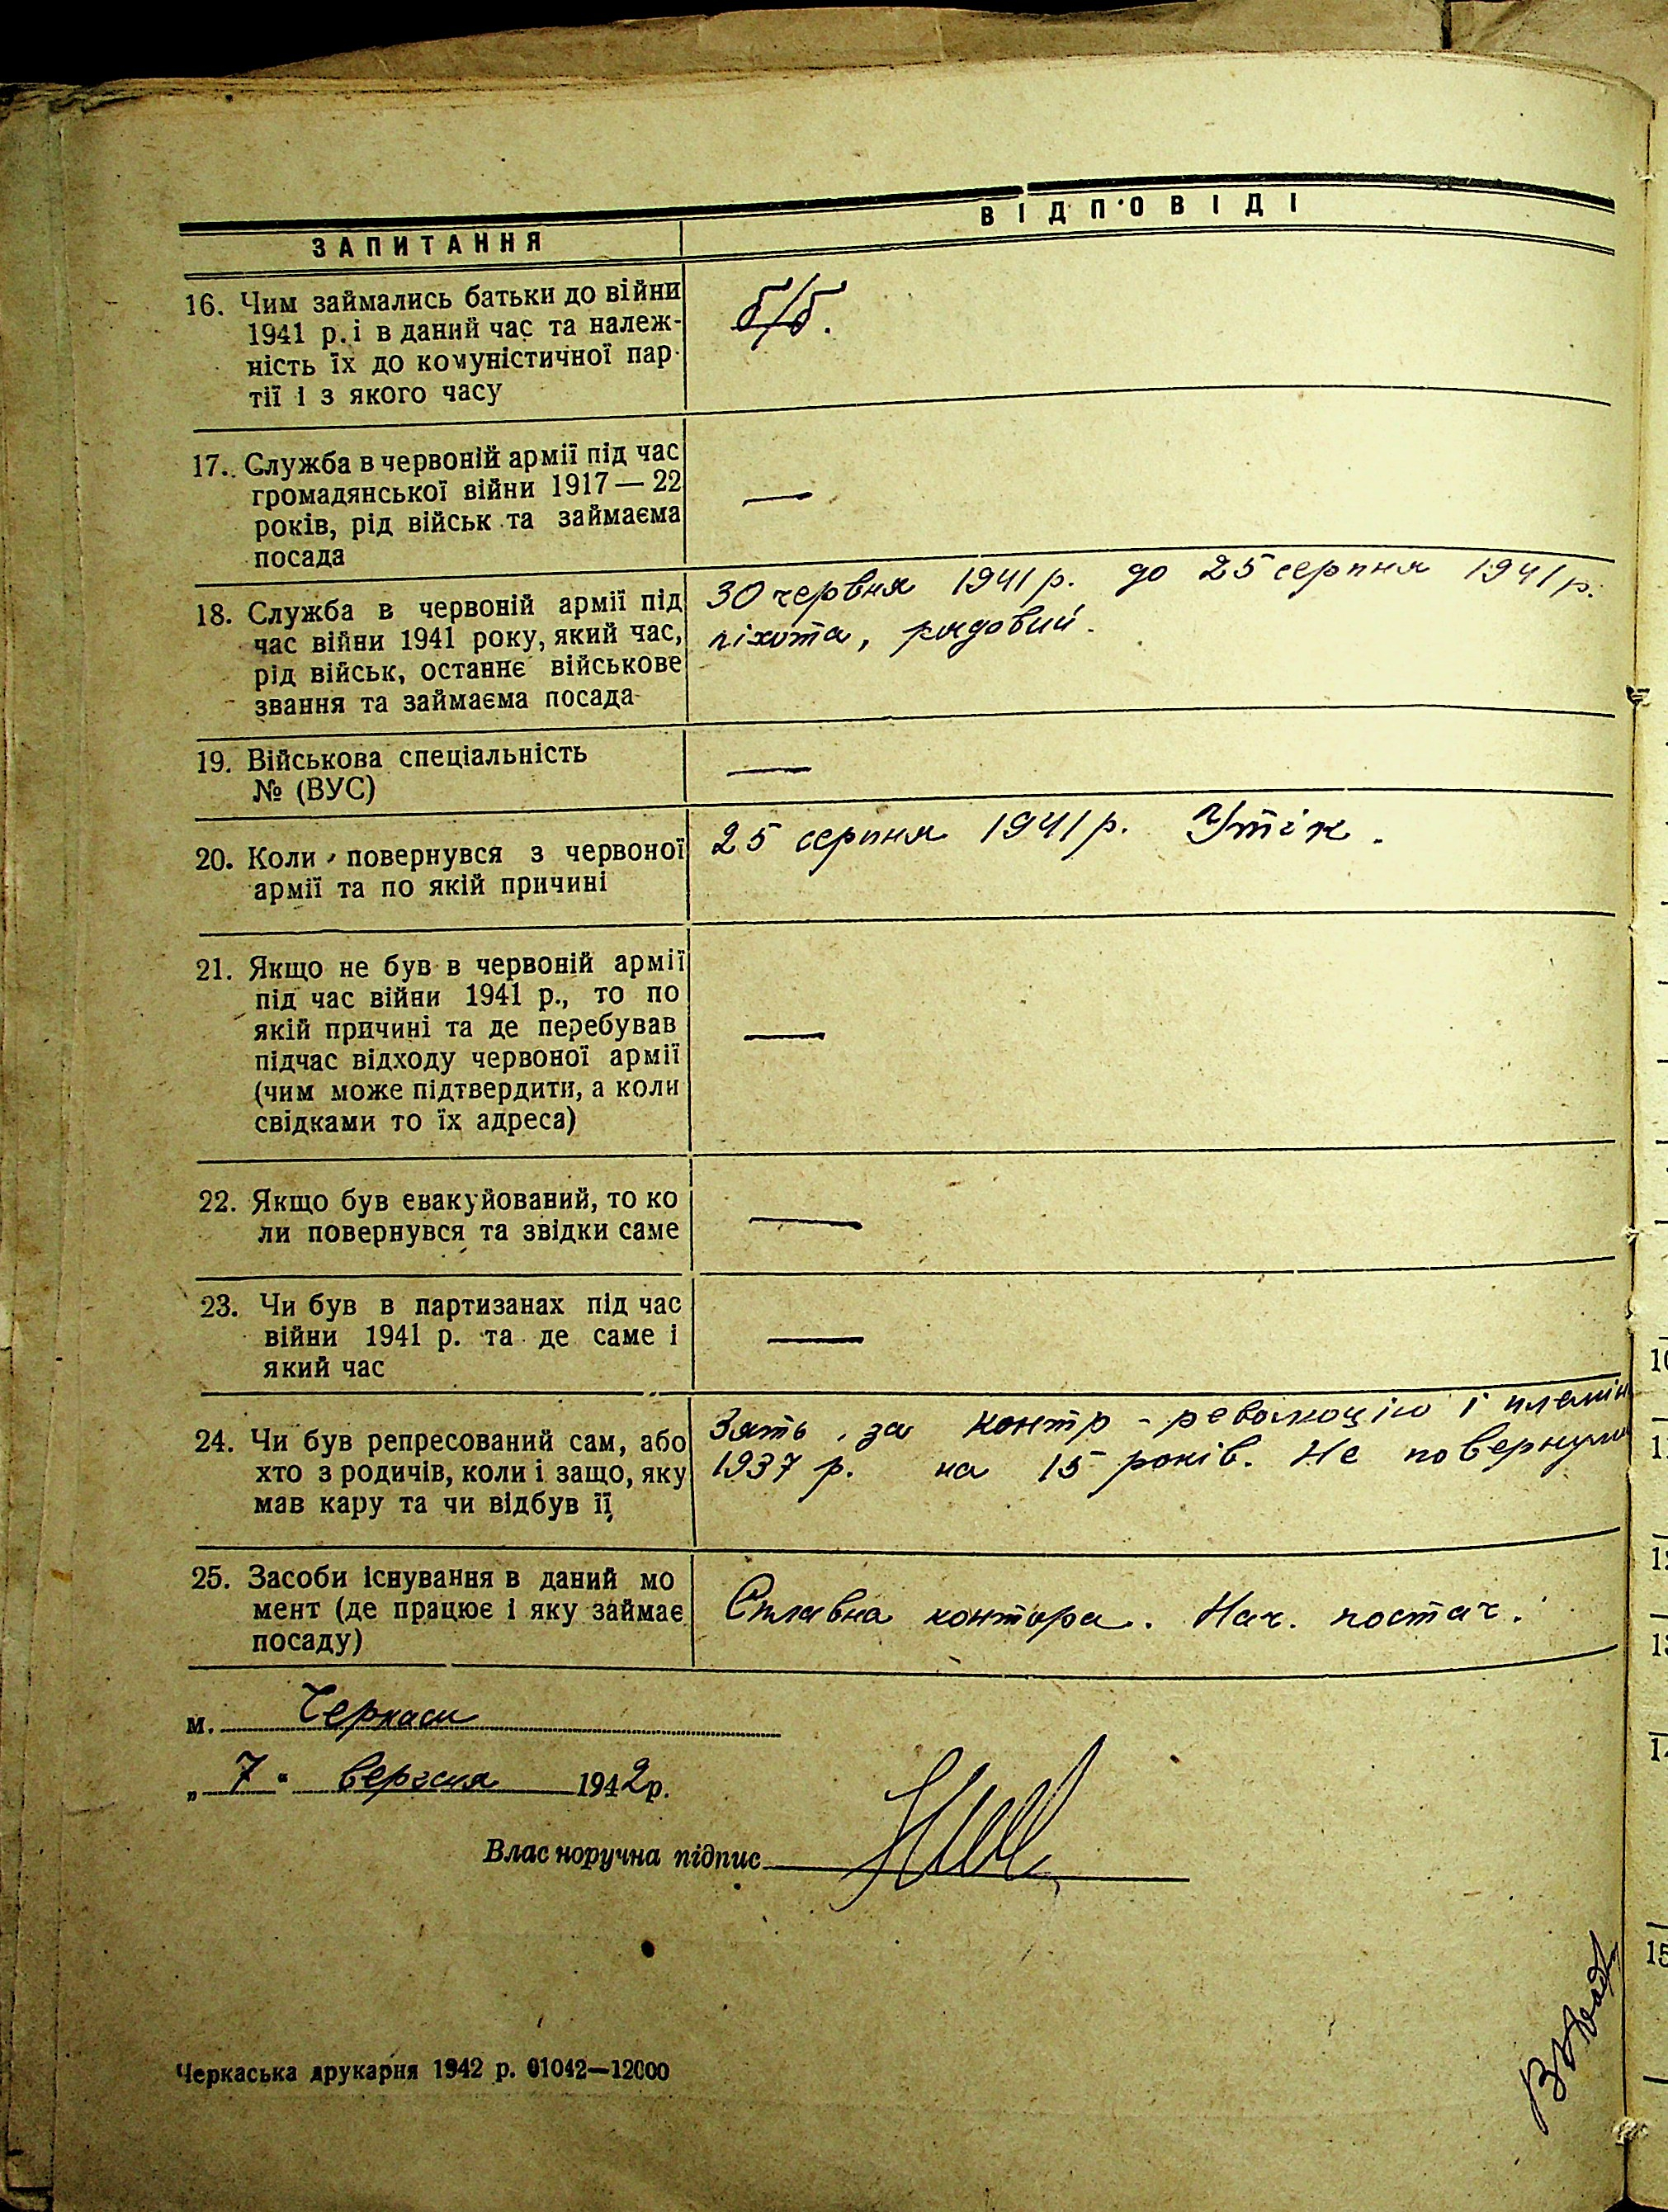 ЗАПИТАННЯ
ВІДПОВІДІ
16. Чим займались батьки до війни
1941 р. і в даний час та належ-
ність їх до комуністичної пар-
тії і з якого часу
б/б.
17. Служба в червоній армії під час
громадянської війни 1917 — 22
років, рід військ та займаєма
посада
—
18. Служба в червоній армії під
час війни 1941 року, який час,
рід військ, останнє військове
звання та займаєма посада
30 червня 1941 р. до 25 серпня 1941 р.
піхота, рядовий.
19. Військова спеціальність
№ (ВУС)
—
20. Коли повернувся з червоної
армії та по якій причині
25 серпня 1941 р. Утік.
21. Якщо не був в червоній армії
під час війни 1941 р., то по
якій причині та де перебував
підчас відходу червоної армії
(чим може підтвердити, а коли
свідками то їх адреса)
—
22. Якщо був евакуйований, то ко
ли повернувся та звідки саме
—
23. Чи був в партизанах під час
війни 1941 р. та де саме і
який час
—
24. Чи був репресований сам, або
хто з родичів, коли і защо, яку
мав кару та чи відбув її
Зять, за контр-революцію і племін
1937 р. на 15 років. Не повернули
25. Засоби існування в даний мо
мент (де працює і яку займає
посаду)
Сплавна контора. Нач. постач.
м. Черкаси
„ 7 " вересня 1942 р.
Власноручна підпис
Черкаська друкарня 1942 р. 01042—12000
10
11
12
13
14
15